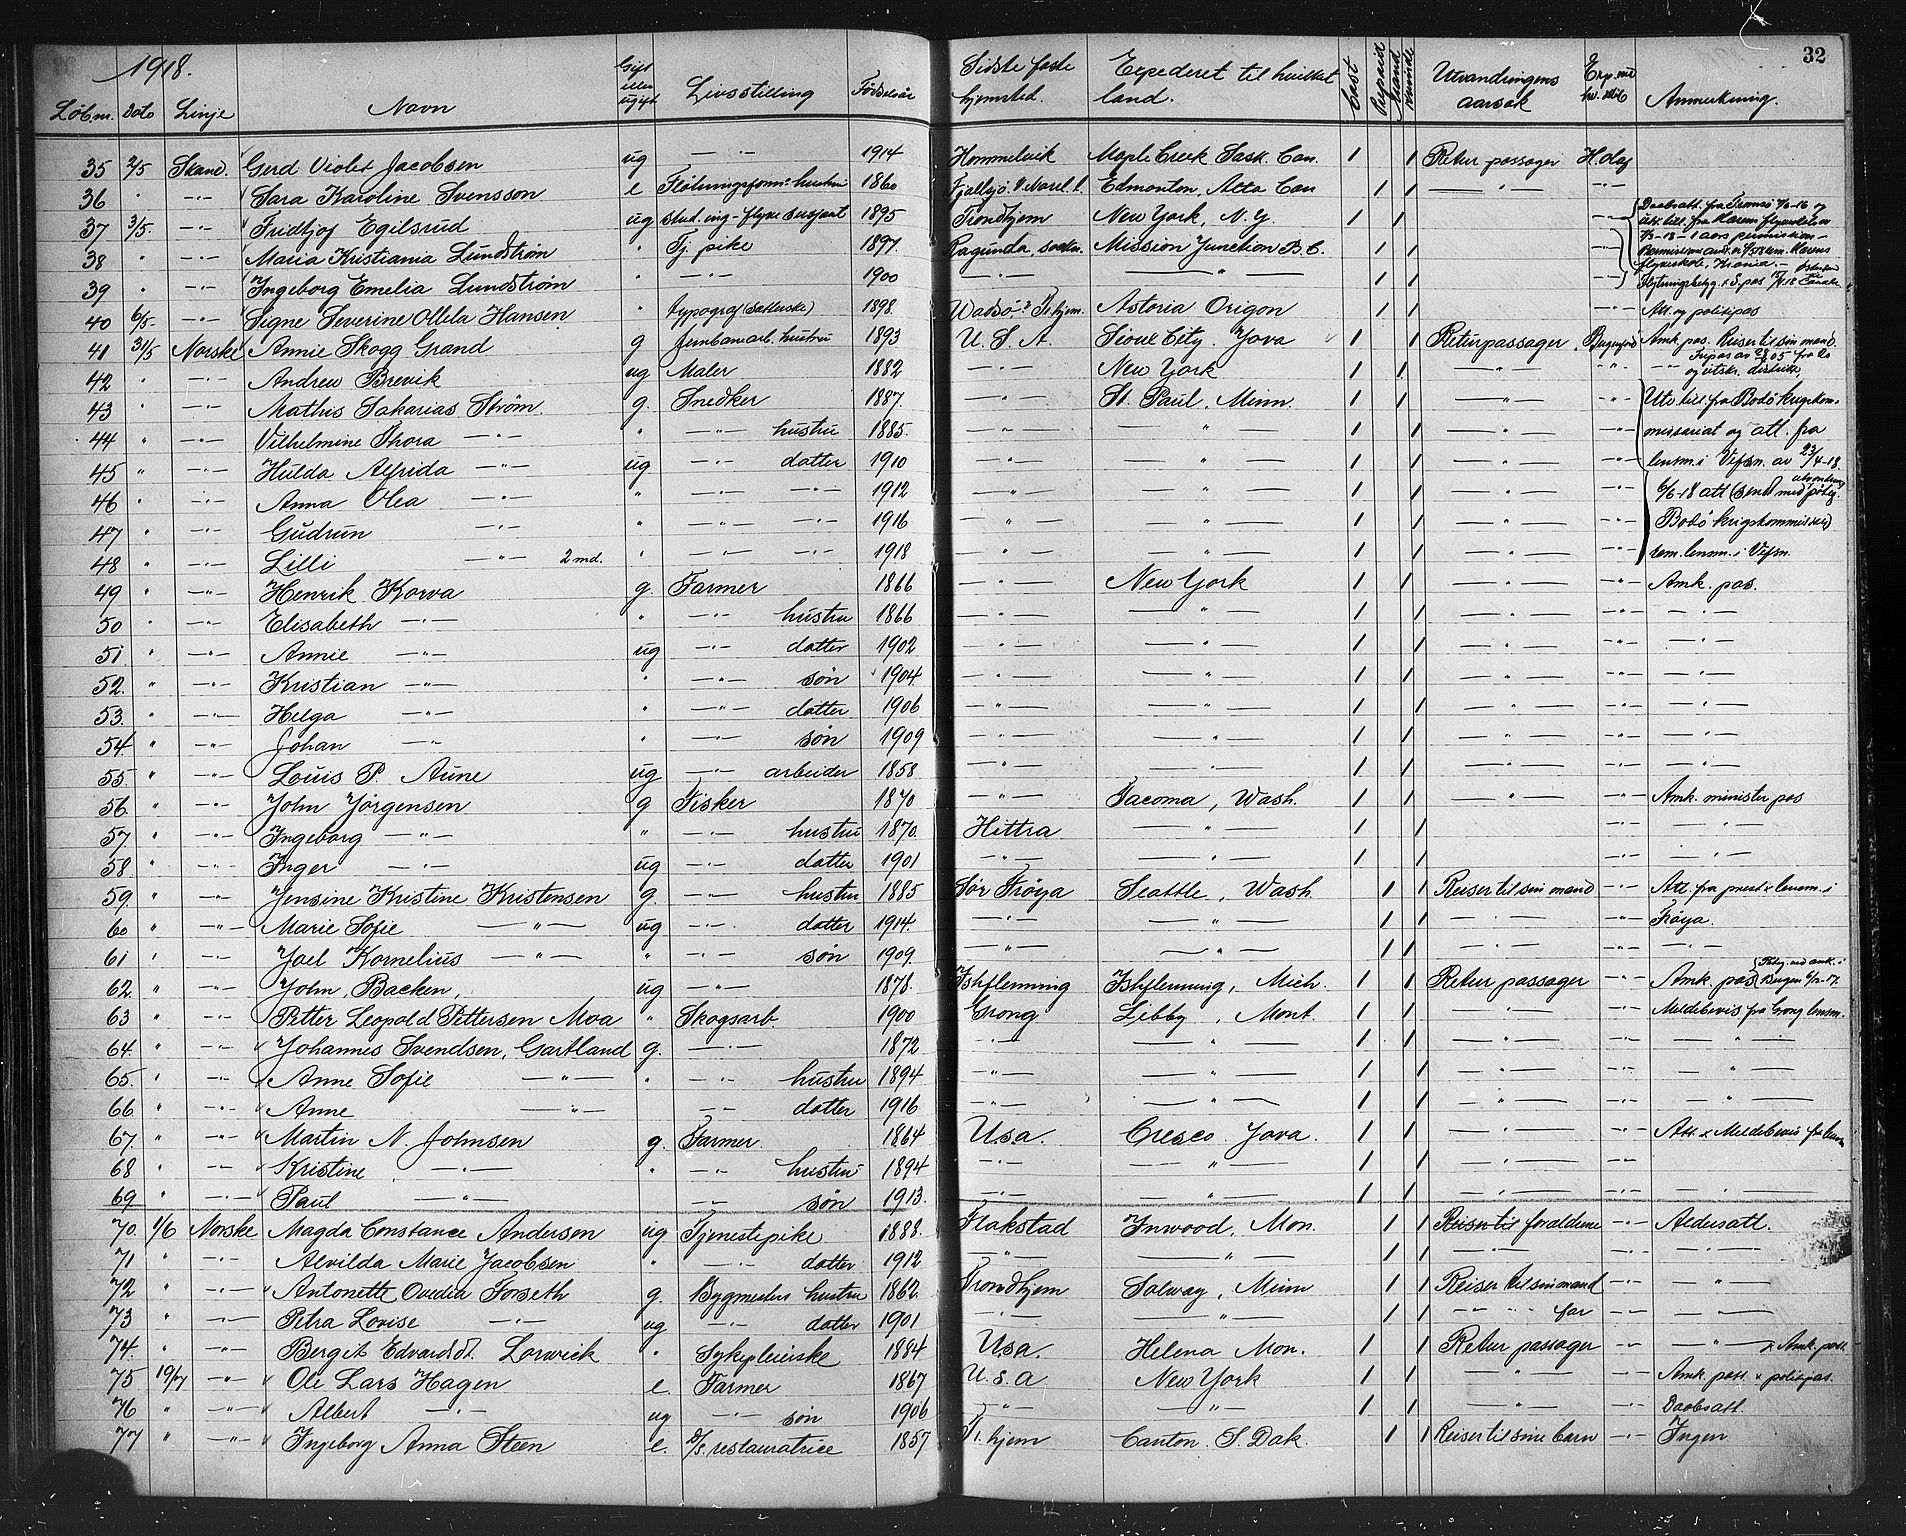 32
1918.
Löb.nr. Dato Linje Navn Gift eller ugift Livsstilling Födselsår Sidste faste hjemsted. Expederet til hvilket land. Cast Prepaid Mand Kvinde Utvandringens aarsak Exp. mt hv. skib Anmerkning.
35 2/5 Skand. Gerd Violet Jacobsen ug —"— 1914 Hommelvik Maple Creek Sask. Can. 1 1 Retur passager H. olaf
36 " —"— Sara Karoline Svensson e Flötningsform. hustru 1860 Fjallsjö Edmonton, Alta Can 1 1 —"— —"—
37 3/5 —"— Fridtjof Egilsrud ug stud. ing - flyve sersjant 1895 Trondhjem New York, N.Y. 1 1 —"— Daabsatt. fra Tromsö
38 " —"— Maria Kristiania Lundström " Tj. pike 1897 Ragunda, socken. Mission Junction B.C. 1 1
39 " —"— Ingeborg Emelia Lundström " —"— 1900 —"— —"— 1 1 —"—
40 6/5 —"— Signe Severine Ottela Hansen " typograf (Setterske) 1898. Wadsö? Tr.hjem. Astoria Origon 1 1 —"— Att. og politipas
41 31/5 Norske Annie Skogg Grand g jernbanearb. hustru 1893 U.S.A. Sioux City. Jova 1 1 Retur passager Bergensfj. Amk. pas. Reiser til sin mand.
42 " —"— Andrew Brevik ug Maler 1882 —"— New York 1 1 —"— —"— og utskr. distrikt,
43 " —"— Mathis Sakarias Ström g. Snedker 1887. —"— St. Paul, Minn. 1 1 —"— —"— Utv. till. fra Bodö krigskom-
44 " —"— Vilhelmine Thora —"— " —"— hustru 1885. —"— —"— 1 1 —"— —"— missariat og att. fra
45 " —"— Hulda Alfrida —"— ug —"— datter 1910 —"— —"— 1 1 —"— —"— lensm. i Vefsn. av 23/4-18.
46 " —"— Anna Olea —"— " —"— —"— 1912 —"— —"— 1 1 —"— —"— 6/6-18 att (sendt med påteg.
47 " —"— Gudrun —"— " —"— —"— 1916 —"— —"— 1 1 —"— —"— Bodö krigskommissar)
48 " —"— Lilli —"— 2 md. " —"— —"— 1918 —"— —"— 1 1 —"— —"— lensm. i Vefsn.
49 " —"— Henrik Korva g. Farmer 1866 —"— New York 1 1 —"— —"— Amk. pas.
50 " —"— Elisabeth —"— " —"— hustru 1866 —"— —"— 1 1 —"— —"— —"—
51 " —"— Annie —"— ug —"— datter 1902 —"— —"— 1 1 —"— —"— —"—
52. " —"— Kristian —"— " —"— sön 1904 —"— —"— 1 1 —"— —"— —"—
53. " —"— Helga —"— " —"— datter 1906 —"— —"— 1 1 —"— —"— —"—
54. " —"— Johan —"— " —"— sön 1909 —"— —"— 1 1 —"— —"— —"—
55 " —"— Louis P. Aune ug —"— arbeider 1858 —"— —"— 1 1 —"— —"— —"—
56. " —"— John Jörgensen g Fisker 1870 —"— Tacoma, Wash. 1 1 —"— —"— Amk. minister pas
57. " —"— Ingeborg —"— " —"— hustru 1870. Hittra —"— 1 1 —"— —"—
58 " —"— Inger —"— ug —"— datter 1901 —"— —"— 1 1 —"— —"—
59. " —"— Jensine Kristine Kristensen g. —"— hustru 1885 Sör Fröya Seattle, Wash. 1 1 Reiser til sin mand —"— Att. fra prest & lensm. i
60 " —"— Marie Sofie —"— ug —"— datter 1914. —"— —"— 1 1 —"— —"— Fröya.
61 " —"— Joel Kornelius —"— " —"— sön 1909. —"— —"— 1 1 —"— —"— —"—
62. " —"— John Backen, ug —"— 1878. Ishflemming Ishflemming, Mich. 1 1 Retur passager —"— Amk. pas (Påteg. ved ank. i Bergen
63 " —"— Petter Leopold Pettersen Moa " Skogsarb. 1900 Grong Libby, Mont. 1 1 —"— —"— Meldebevis fra Grong lensm.
64. " —"— Johannes Svendsen, Gartland g. —"— 1872 —"— —"— 1 1 —"— —"— —"—
65. " —"— Anne Sofie —"— " —"— hustru 1894 —"— —"— 1 1 —"— —"— —"—
66 " —"— Anne —"— —"— datter 1916 —"— —"— 1 1 —"— —"— —"—
67. " —"— Martin N. Johnsen g. Farmer. 1864 Usa. Cresco. Jova. 1 1 —"— —"— Att. & Meldebevis fra lensm
68 " —"— Kristine —"— " —"— hustru 1894 —"— —"— 1 1 —"— —"—
69 " —"— Paul —"— —"— sön 1913. —"— —"— 1 1 —"— —"—
70. 1/6 Norske Magda Constance Andersen ug Tjenestepike 1888. Flakstad Inwood, Mon. 1 1 Reiser til foraldrene —"— Aldersatt.
71 " —"— Alvilda Marie Jacobsen " —"— datter 1912 —"— —"— 1 1 —"— —"—
72 " —"— Antonette Ovedia Forseth g. Bygmesters hustru 1862. Trondhjem Solway, Minn 1 1 Reiser til sin mand —"— —"—
73 " —"— Petra Lovise —"— ug —"— datter 1901 —"— —"— 1 1 —"— far —"— —"—
74. " —"— Berget Edvardsdt. Lorwick " Sykepleierske 1884 Usa. Helena Mon. 1 1 Retur passager —"— —"— & Amk. pass.
75 19/7 —"— Ole Lars Hagen e. Farmer 1867 U.s.a New York 1 1 —"— —"— Amk. pass. & politipas.
76 " —"— Albert —"— ug —"— sön 1906 —"— —"— 1 1 —"— —"— Daabsatt.
77 " —"— Ingeborg Anna Steen e. D/s. restauratrice 1857 Tr.hjem Canton, S. Dak. 1 1 Reiser til sine barn —"— Ingen